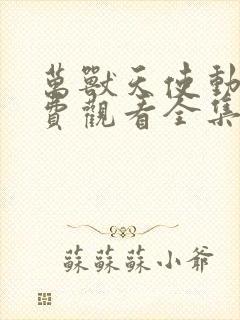 萬獸天使動
費觀看全集
蘇蘇蘇小爺